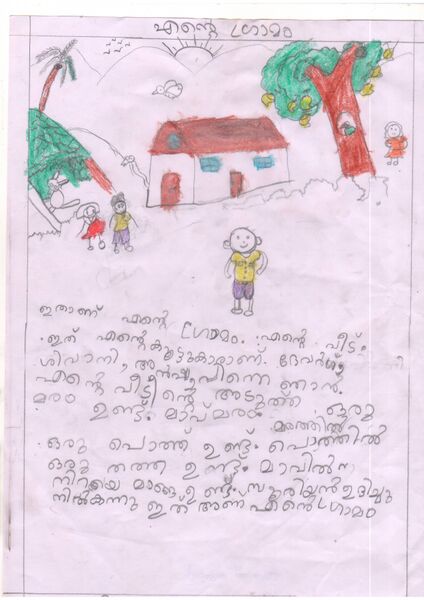 എന്റെ ഗ്രാമം
ഇതാണ് എന്റെ ഗ്രാമം. എന്റെ വീട്.
ഇത് എന്റെ കൂട്ടുകാരാണ്. ദേവർഗ്
ശിവാനി, അൻഷ, പിന്നെ ഞാൻ.
എന്റെ വീട്ടിന്റെ അടുത്ത് ഒരു
മരം ഉണ്ട്. മാവ്മരം മരത്തിൽ
ഒരു പൊത്ത് ഉണ്ട്. പൊത്തിൽ
ഒരു തത്ത ഉണ്ട്. മാവിൽ
നിറയെ മാങ്ങ ഉണ്ട്. സൂര്യൻ ഉദിച്ചു
നിൽകുന്നു ഇത് അണ് എന്റെ ഗ്രാമം